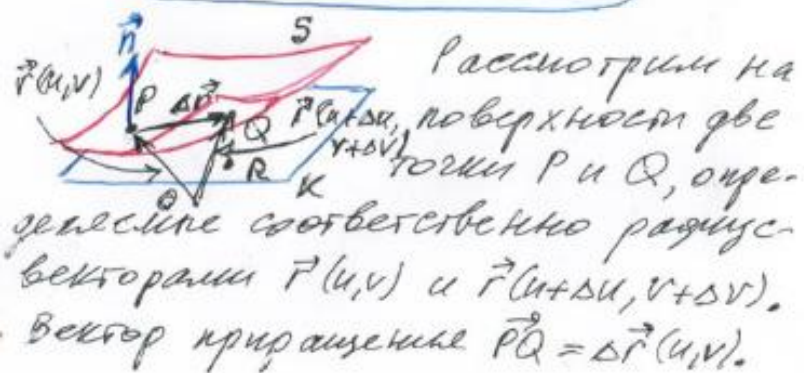 S
n⃗
r⃗(u,v)
P
Δr⃗
Q
r⃗(u+Δu,
v+Δv)
R
O
K
Рассмотрим на
поверхности две
точки P и Q, опре-
деляемые соответственно радиус-
векторами r⃗(u,v) и r⃗(u+Δu, v+Δv).
Вектор приращение P⃗Q⃗ = Δr⃗(u,v).